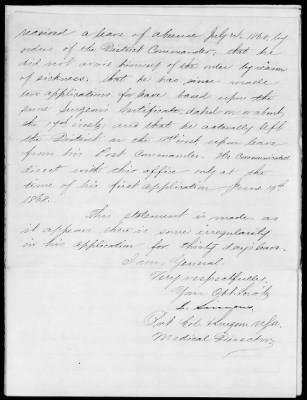 received a leave of absence July 2d, 1868, by
orders of the District Commander; that he
did not avail himself of the order by reason
of sickness; that he has since made
two applications for leave based upon the
same Surgeon's Certificate, dated on or about
the inst, and that he actually left
the District on the inst upon leave
from his Post Commander. He communicated
direct with this office only at the
time of his first application June 19th
1868.
This statement is made as
it appears there is some irregularity
in his application for thirty days leave.
I am, General
Very respectfully,
Your Obt Servt
Simmons
Bvt Col. Surgeon U.S.A.
Medical Director